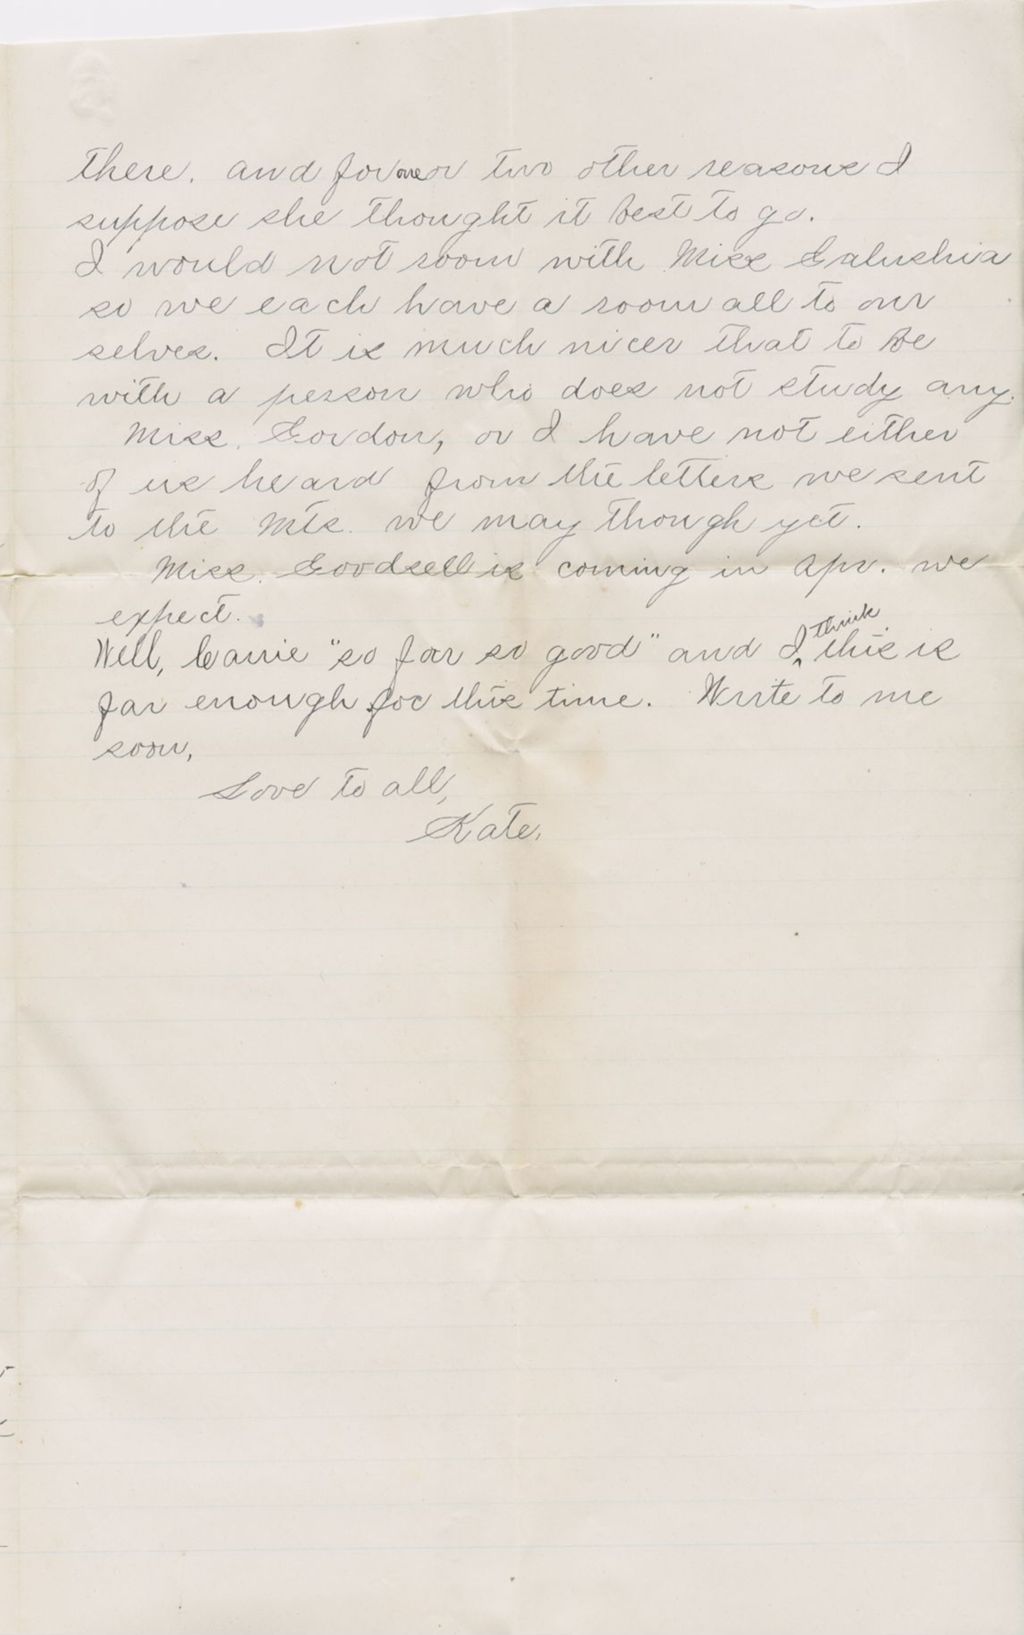 there. and for one or two other reasons I
suppose she thought it best to go.
I would not room with Miss Galushia
so we each have a room all to our
selves. It is much nicer that to be
with a person who does not study any.
Miss. Gordon, or I have not either
of us heard from the letters we sent
to the Mts. we may though yet.
Miss. Goodsell is coming in Apr. we
expect.
Well, Carrie "so far so good" and I think this is
far enough for this time. Write to me
soon,
Love to all,
Kate.